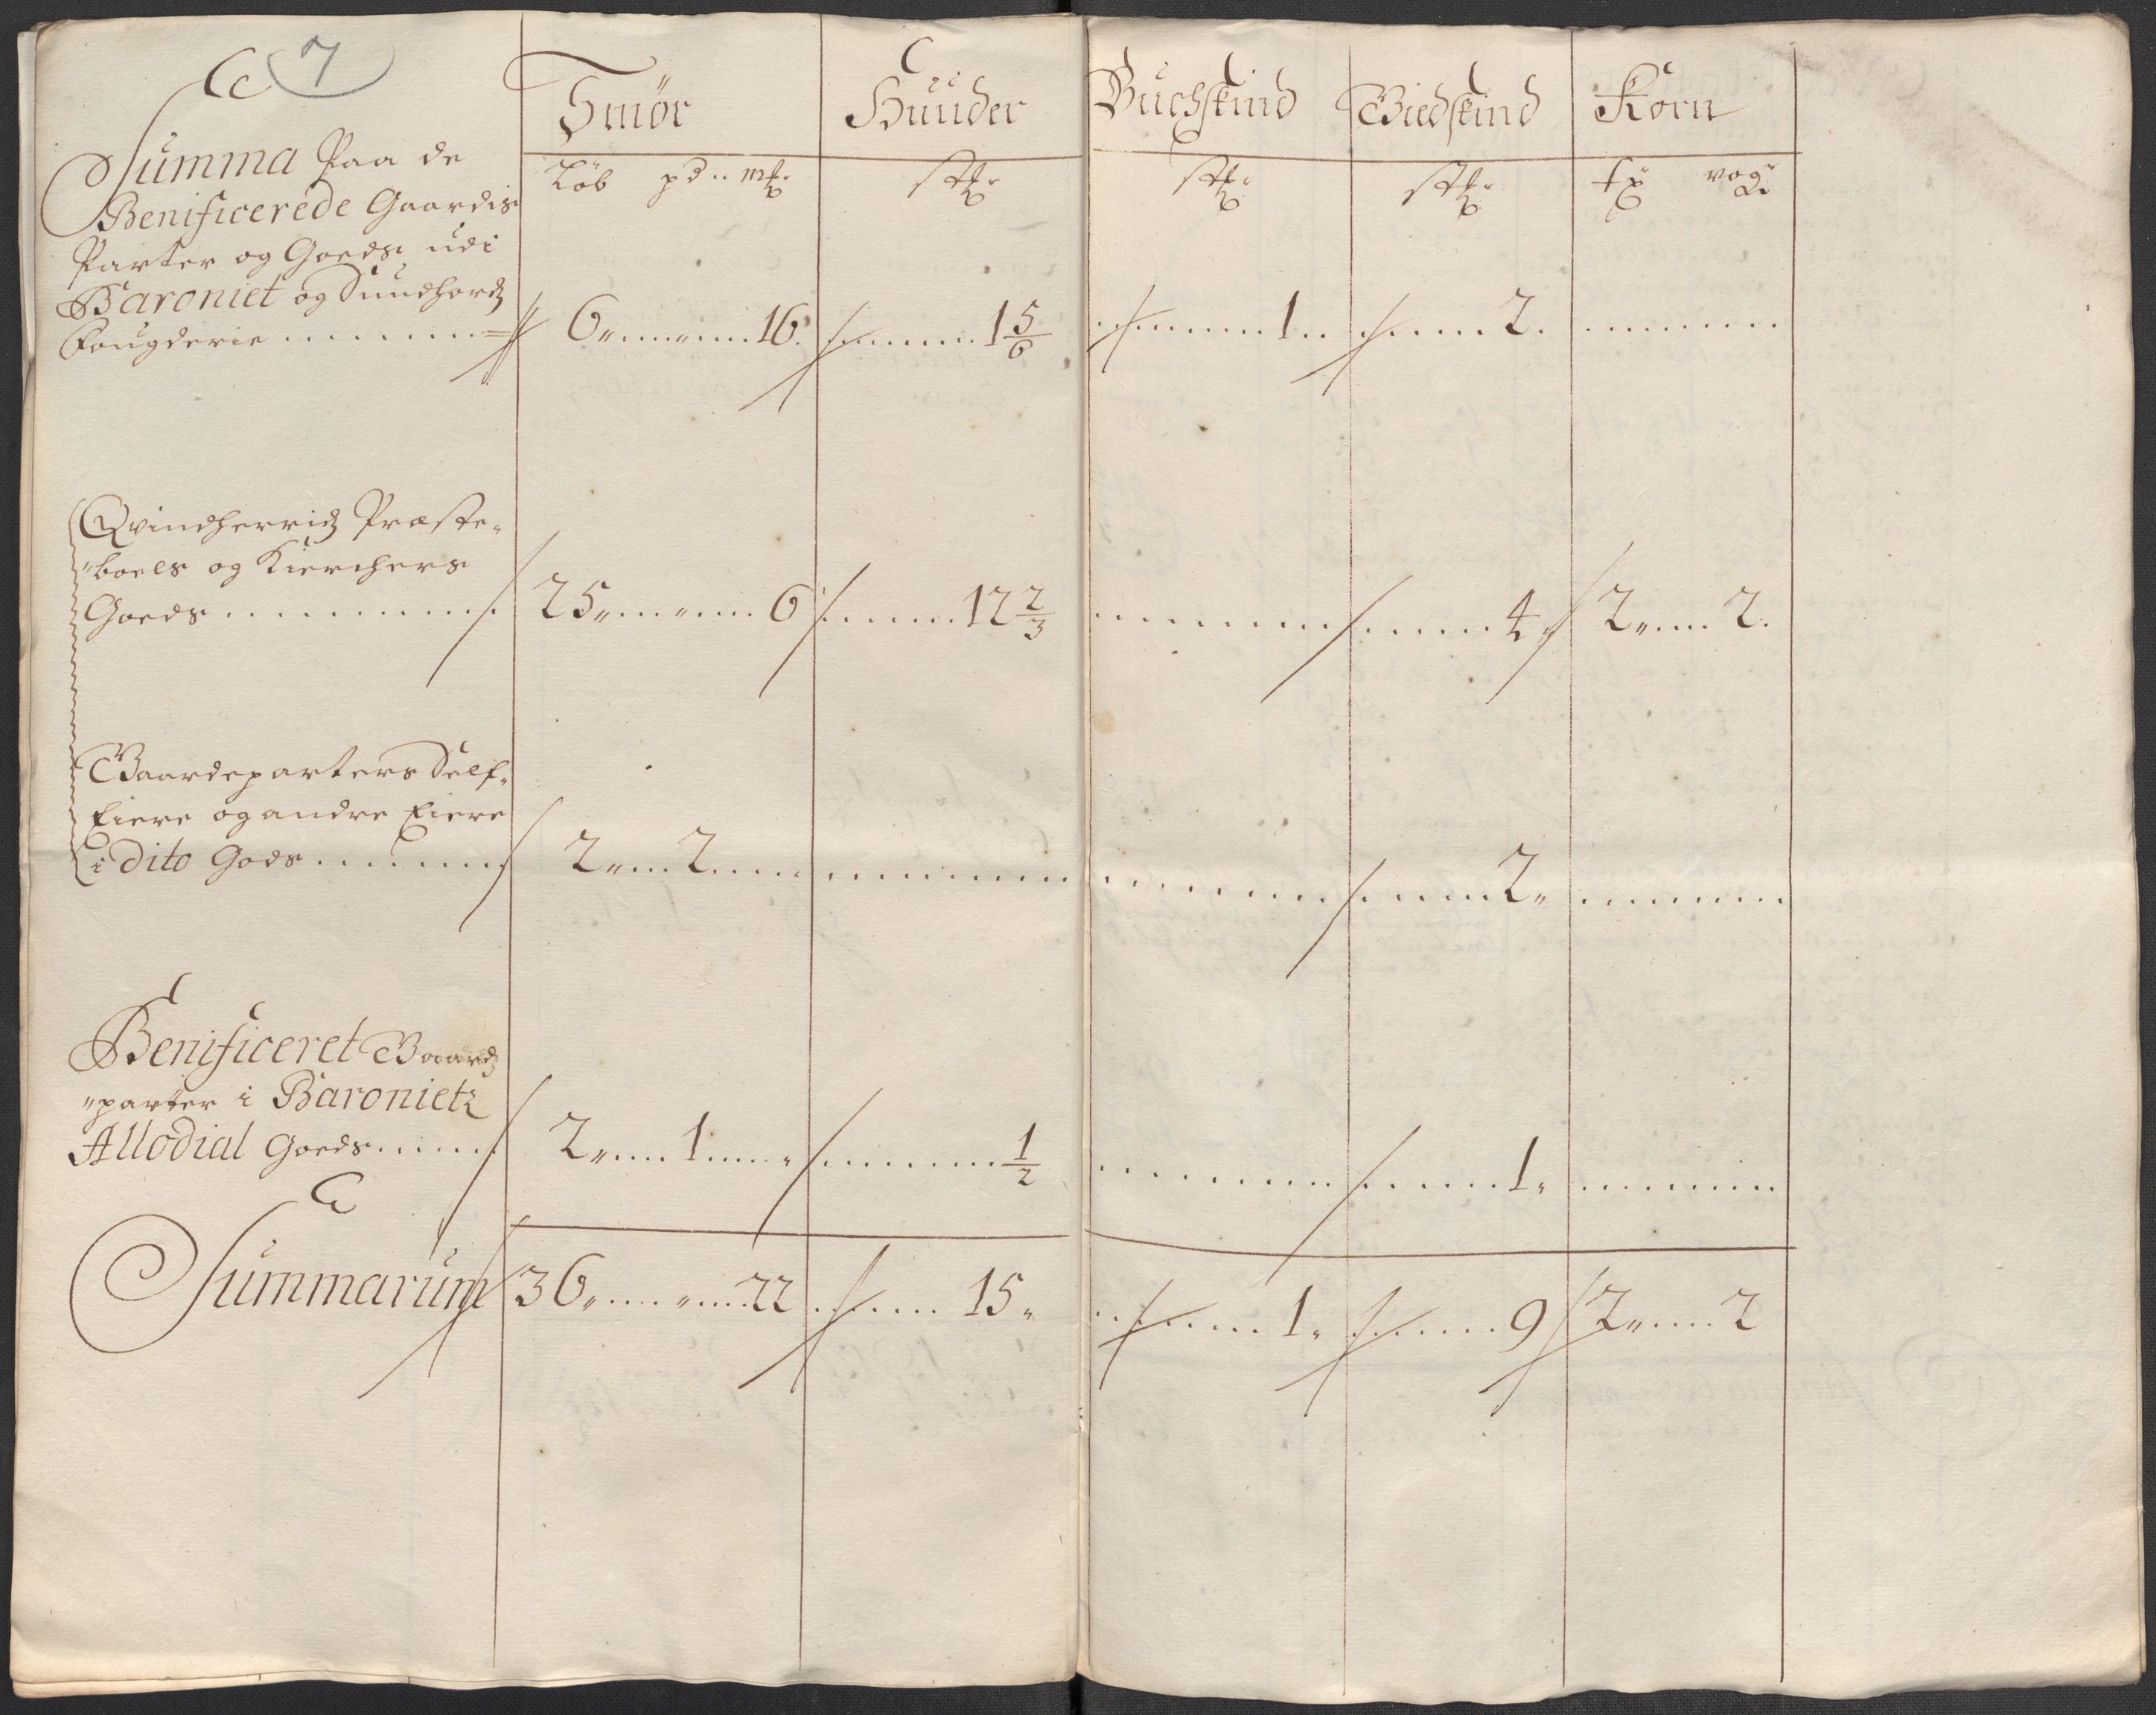 7
Smör Huuder Buchskind Giedskind Korn
Löb pd mk stk stk stk vog
Summa Paa de
Benificerede Gaardis
Parter og Goeds udi
Baroniet og Sundhord
Fougderie 6 16 1 5/6 1 2
Qvindherrid Præste-
boels og Kierchers
Goeds 25 6 12 2/3 4 2 2
Gaardeparters Self-
Eiere og andre Eiere
i dito Gods 2 2 2
Benificeret Gaard
parter i Baroniet
Allodial Goeds 2 1 1/2 1
Summarum 36 22 15 1 9 2 2